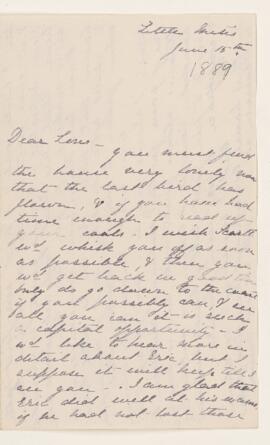 Little Metis
June 15th
1889
Dear Lome -
You must find
the house very lonely now
that the last bird has
flown, & if you have had
time enough to read up
your cards. I wish
wd whisk you off as soon
as possible, & then you
wd get back in good time
only do go down to the coast
if you possibly can, & see
all you can it is such
a capital opportunity - I
wd like to hear more in
detail about Eric, but I
suppose it will keep till I
see you - . I am glad that
Eric did well at his exams
if he had not lost those